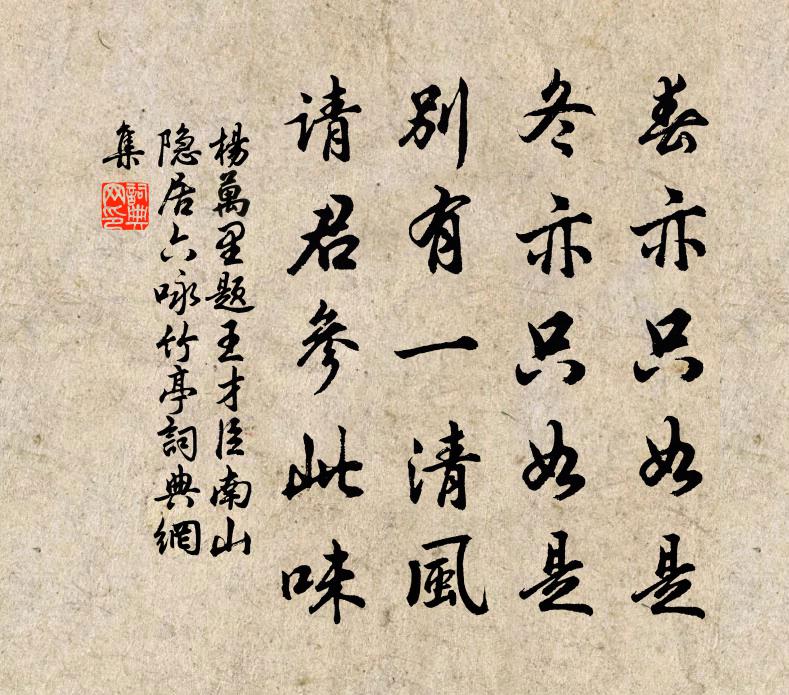 春亦只如是
冬亦只如是
別有一清風
请君參此味
楊萬里题王才臣南山
隐居六咏竹亭詞典網
集
詞典
网印